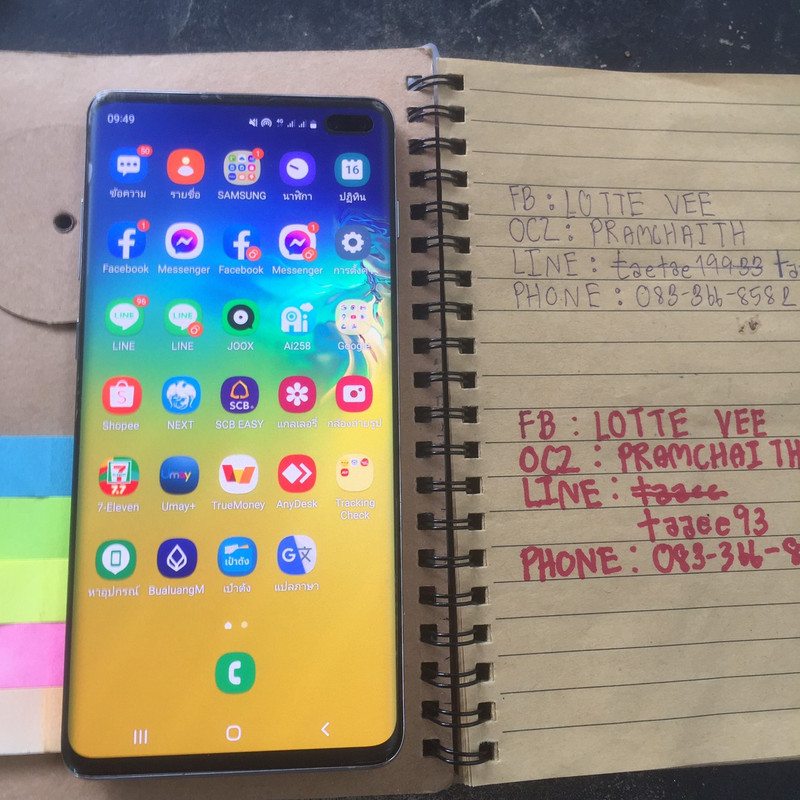 09:49
50
1
16
ข้อความ รายชื่อ SAMSUNG นาฬิกา ปฏิทิน
1
1
Facebook Messenger Facebook Messenger การตั้งค่า
LINE
96
LINE
Ai
LINE LINE JOOX AI258 Google
SCB
Shopee NEXT SCB EASY แกลเลอรี่
7.7
Umay
7-Eleven Umay+ TrueMoney AnyDesk Tracking
Check
เป๋าตัง
G文
หาอุปกรณ์ BualuangM เป๋าตัง แปลภาษา
FB : LOTTE VEE
OC2 : PRAMCHAITH
LINE : taetae19933 ta
PHONE : 083-366-8582
FB : LOTTE VEE
OC2 : PRAMCHAITH
LINE :
taaee93
PHONE : 083-366-8